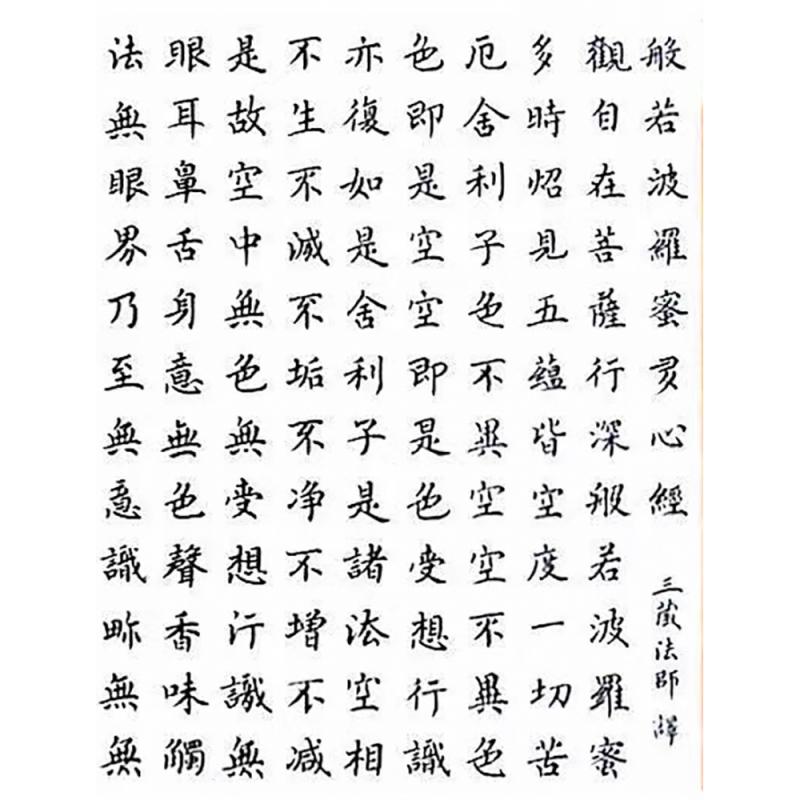 般若波羅蜜多心經 三藏法師譯
觀自在菩薩行深般若波羅蜜
多時炤見五蘊皆空度一切苦
厄舍利子色不異空空不異色
色即是空空即是色受想行識
亦復如是舍利子是諸法空相
不生不滅不垢不净不增不减
是故空中無色無受想行識無
眼耳鼻舌身意無色聲香味觸
法無眼界乃至無意識畍無無